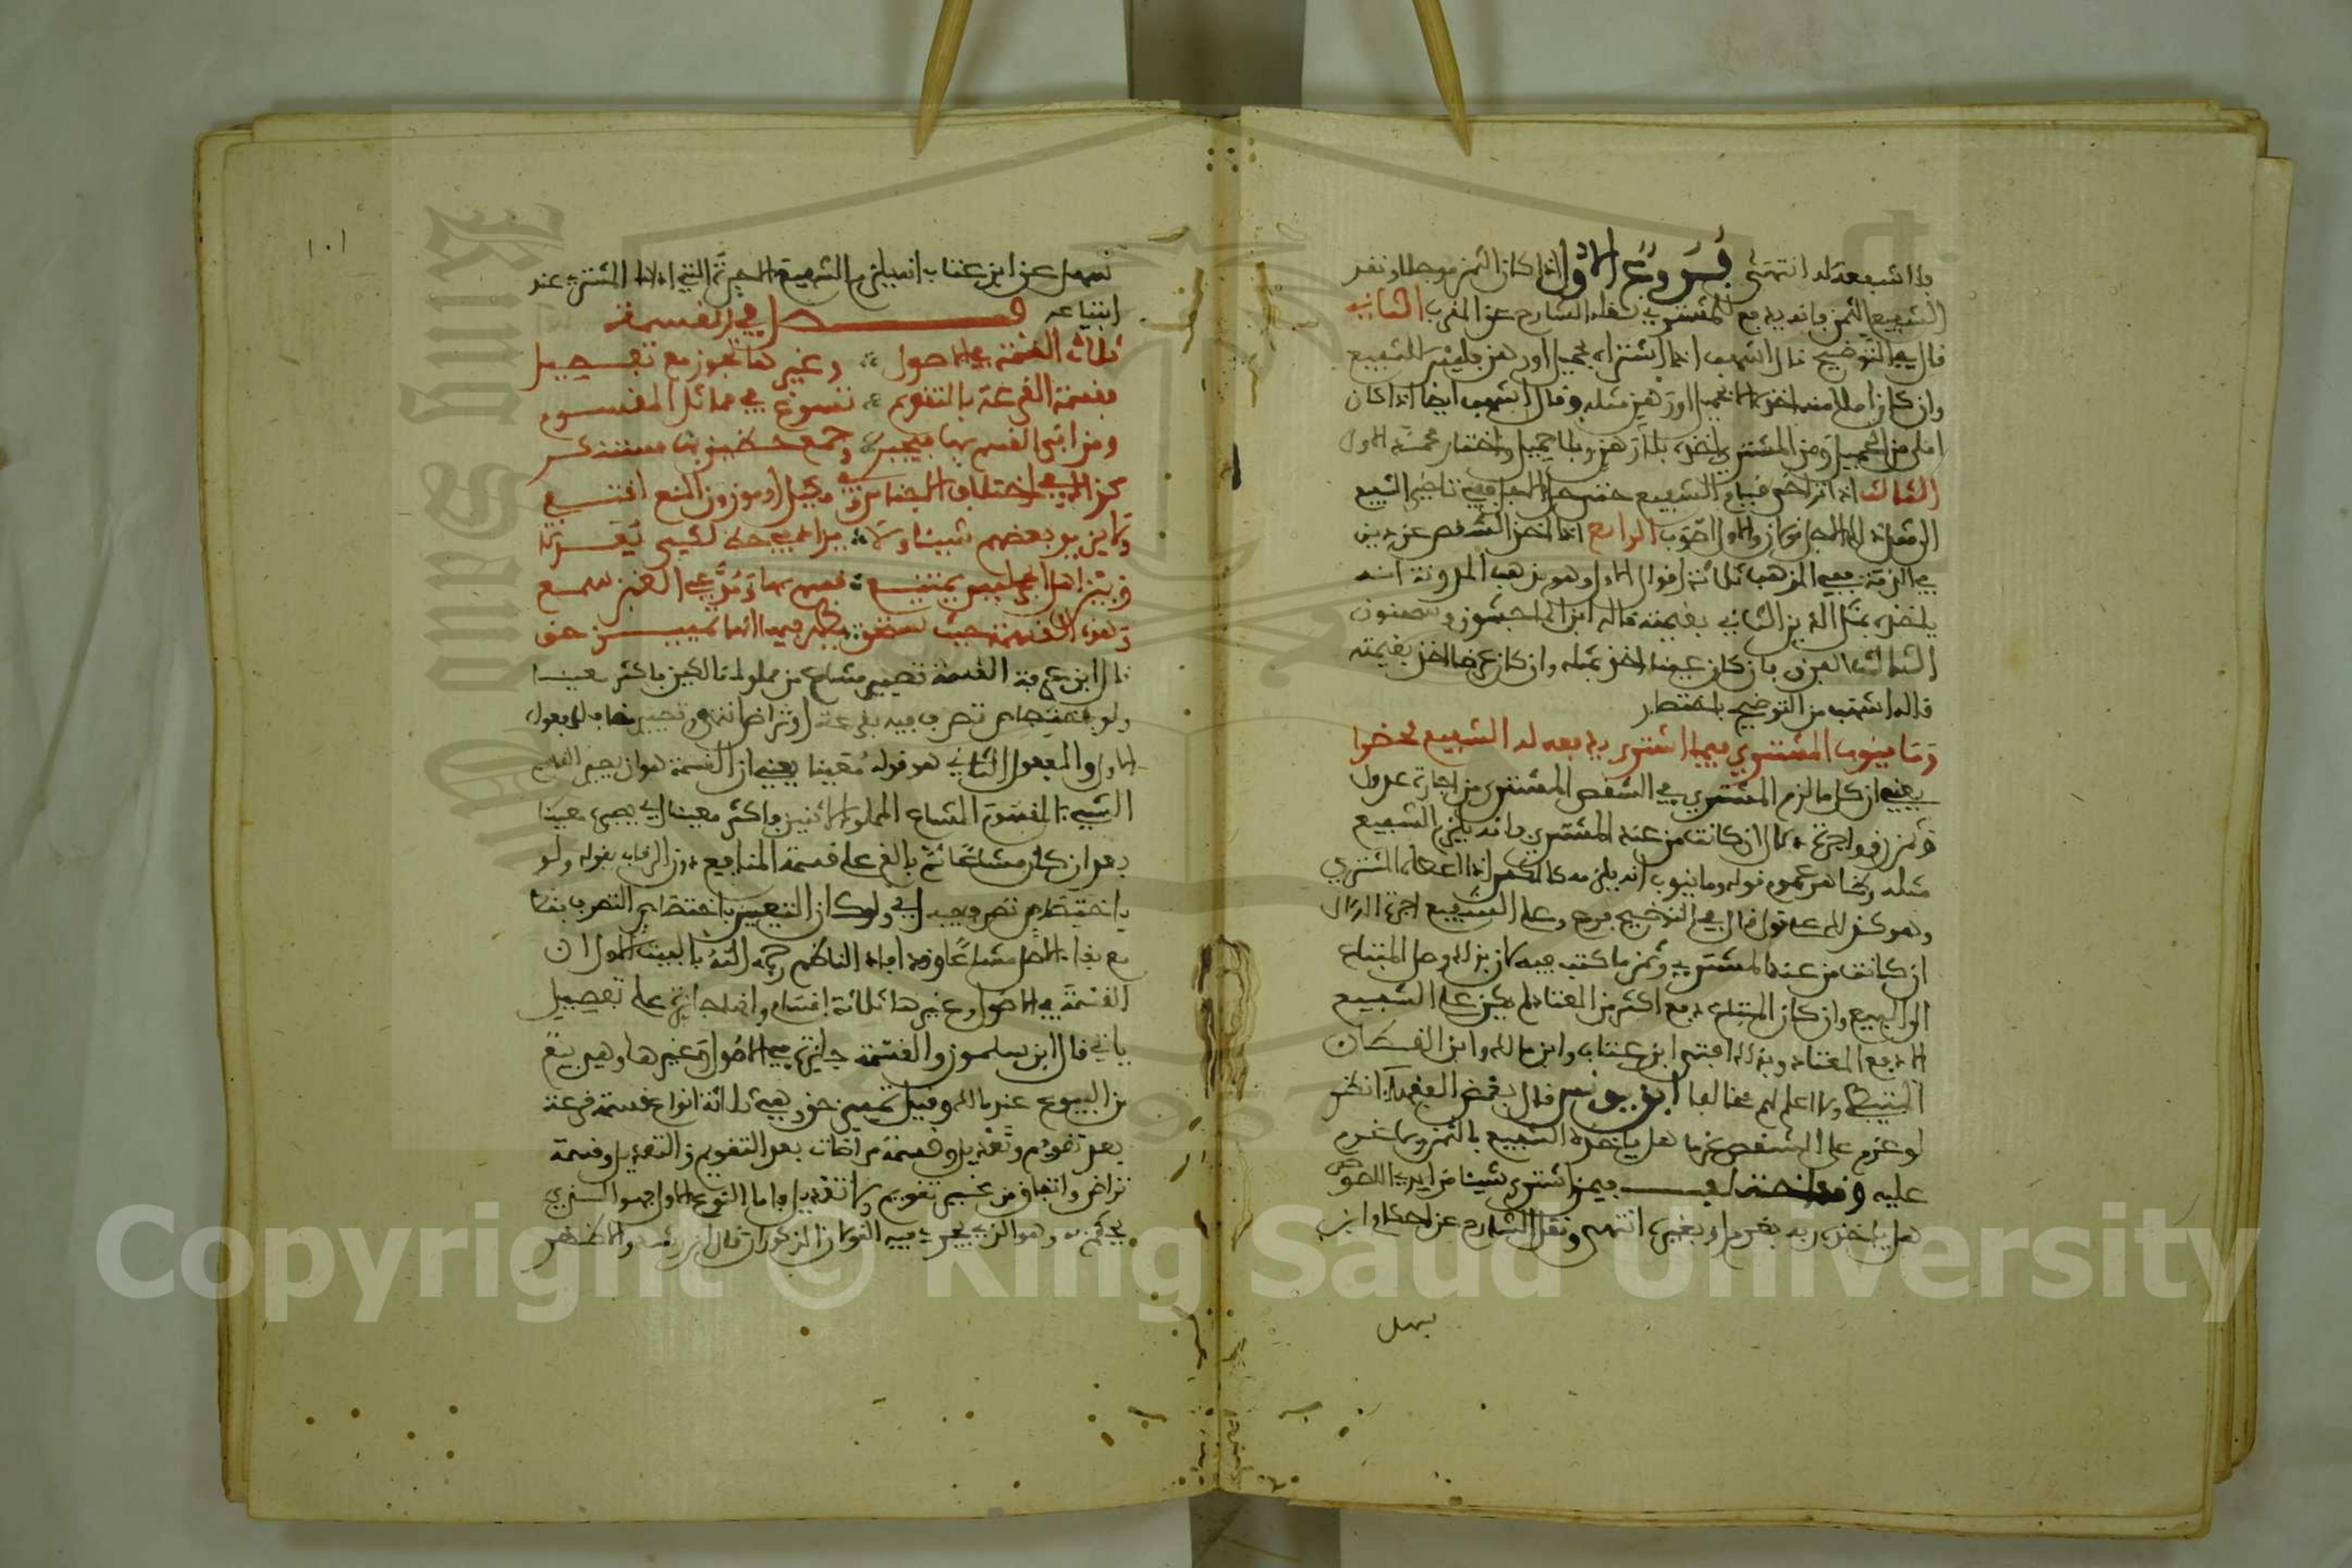 فلا شفعة له انتهى فروع الاول اذا كان الثمن موجلا ونقد
الشفيع الثمن فانه يدفع للمشتري نقله الشارح عن المقرب الثاني
قال في التوضيح قال اشهب اذا اشتراه بحميل او رهن فليس للشفيع
وان كان املا منه اخذه الا بحميل او رهن مثله وقال اشهب ايضا اذا كان
املى من الحميل ومن المشتري اخذه بلا رهن ولا حميل واختار محمد الاول
الثالث اذا تراخى قيام الشفيع حتى حل الاجل ففي تاخير الشفيع
الى مثل ذلك الاجل قولان والاول اصوب الرابع اذا اخذ الشقص عن دين
في الذمة ففي المذهب ثلاثة اقوال الاول وهو مذهب المدونة انه
ياخذه بمثل الدين الثاني بقيمته قاله ابن الماجشون وسحنون
الثالث الفرق فان كان عينا اخذ بمثله وان كان عرضا اخذ بقيمته
قاله اشهب من التوضيح باختصار
وما ينوب المشتري فيما اشترى يدفعه له الشفيع محضرا
يعني ان كل ما لزم المشتري في الشقص المشترى من اجارة عدول
وثمن رق واجرة دلال ان كانت من عند المشتري فانه يلزم الشفيع
مثله وظاهر عموم قوله وما ينوب انه يلزمه كالمكس اذا اعطاه المشتري
وهو كذلك على قول قال في التوضيح فرع وعلى الشفيع اجرة الدلال
ان كانت من عند المشتري وثمن ما كتب فيه لان بذلك وصل المبتاع
الى البيع وان كان المبتاع دفع اكثر من المعتاد لم يكن على الشفيع
الا دفع المعتاد وبذلك افتى ابن عتاب وابن مالك وابن القطان
المتيطي ولا اعلم لهم مخالفا ابن يونس قال بعض الفقهاء انظر
لو غرم على الشقص غرما هل ياخذه الشفيع بالثمن وبما غرم
عليه وقد اختلف فيمن اشترى شيئا من ايدي اللصوص
هل ياخذه ربه بغرم او بغيره انتهى ونقل الشارح عن احكام ابن
سهل
١٠١
سهل عن ابن عتاب انه يلزم الشفيع الاجرة التي اداها المشتري عند
ابتياعه فصل في القسمة
ثلاث القسمة في الاصول وغيرها تجوز مع تفصيل
فقسمة القرعة بالتقويم تسوغ في تماثل المقسوم
ومن ابى القسم بها فيجبر وجمع حظين بها مستنكر
كذاك في اختلاف الاجناس وفي مكيل او موزون المنع اقتفي
ولا يزيد بعضهم شيئا ولا يزاد في حظ لشيء نقلا
وبين اهل الحجر ليس يمتنع قسم بها ومدعي الغبن سمع
وهذه القسمة حيث تستحق يظهر فيها انها تمييز حق
قال ابن عرفة القسمة تصيير مشاع من مملوك مالكين فاكثر معينا
ولو باختصاص تصرف فيه بقرعة او تراض انتهى وتصيير مضاف للمفعول
الاول والمفعول الثاني هو قوله معينا يعني ان القسمة هو ان يصير القاسم
الشيء المقسوم المشاع المملوك لاثنين فاكثر معينا اي يصيره معينا
بعد ان كان مشاعا ثم بالغ على قسمة المنافع دون الرقاب بقوله ولو
باختصاص تصرف فيه اي ولو كان التعيين باختصاص التصرف فقط
مع بقاء الاصل مشاعا وقد افاد الناظم رحمه الله بالبيت الاول ان
القسمة في الاصول وغيرها ثلاثة اقسام وانها جائزة على تفصيل
ياتي قال ابن سلمون والقسمة جائزة في الاصول وغيرها وهي بيع
من البيوع عند مالك وقيل تمييز حق وهي ثلاثة انواع قسمة قرعة
بعد تقويم وتعديل وقسمة مراضات بعد التقويم والتعديل وقسمة
تراض واتفاق من غير تقويم ولا تعديل فاما النوع الاول فهو الذي
يحكم به وهو الذي يجري فيه القولان المذكوران قال ابن رشد والاظهر